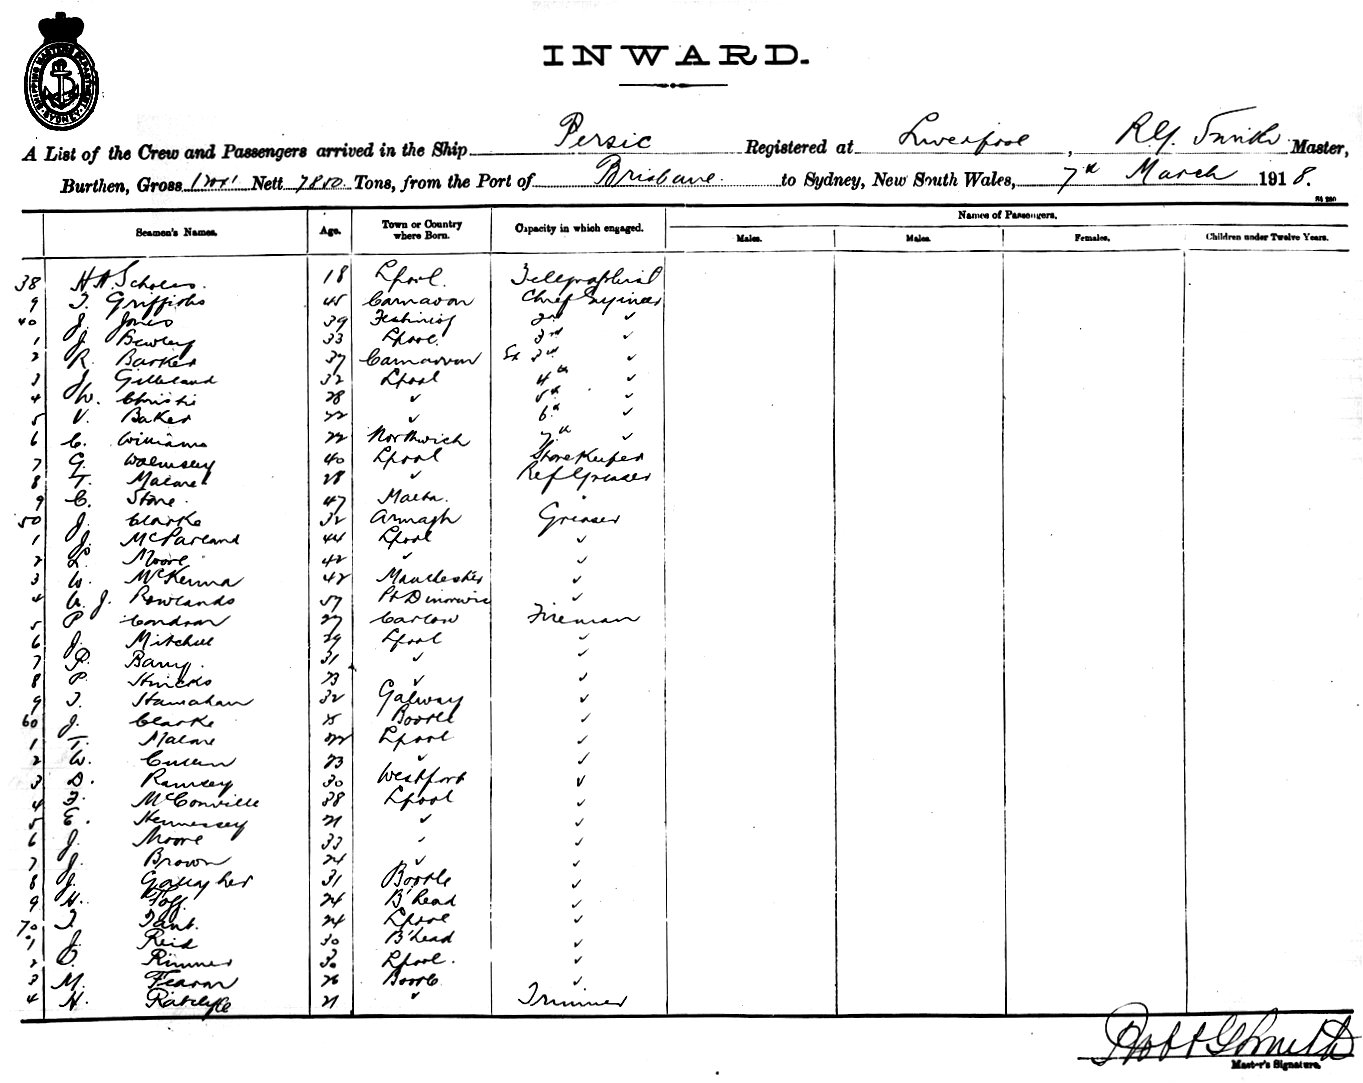 SHIPPING MASTERS DEPARTMENT SYDNEY
INWARD.
A List of the Crew and Passengers arrived in the Ship Persic Registered at Liverpool, R.G. Smith Master,
Burthen, Gross Nett 7850 Tons, from the Port of Brisbane. to Sydney, New South Wales, 7th March 1918.
Seamen's Names. Age. Town or Country where Born. Capacity in which engaged. Names of Passengers.
Males. Males. Females. Children under Twelve Years.
38 H A. Scholes 18 Lpool. Telegraphist
9 T. Griffiths 45 Carnavon Chief Engineer
40 J. Jones 39 Festiniog 2nd "
1 J. Bewley 33 Lpool. 3rd "
2 R. Barker 37 Carnarvon Ex 3rd "
3 J. Gilleland 32 Lpool 4th "
4 W. Christie 28 " 5th "
5 V. Baker 22 " 6th "
6 C. Williams 22 Northwich 7th "
7 G. Walmsley 40 Lpool Storekeeper
8 T. Malone 28 " Ref Greaser
9 C. Stone. 47 Malta. "
50 J. Clarke 32 Armagh Greaser
1 J. McParland 44 Lpool "
2 L. Moore 42 " "
3 W. McKenna 42 Manchester "
4 W. J. Rowlands 57 Pt Dinorwic "
5 P Condron 27 Carlow Fireman
6 J. Mitchell 29 Lpool "
7 P. Barry. 31 " "
8 P. Hincks 23 " "
9 T. Hanrahan 32 Galway "
60 J. Clarke 25 Bootle "
1 T. Malone 22 Lpool "
2 W. Cullen 23 " "
3 D. Ramsey 30 Westport "
4 F. McConville 38 Lpool "
5 E. Hennessey 21 " "
6 J. Moore 33 " "
7 J. Brown 24 " "
8 J. Gallagher 31 Bootle "
9 H. 24 B'head "
70 T. 24 Lpool "
1 J. Reid 30 B'head "
2 Rimmer 30 Lpool. "
3 M. Fearon 26 Bootle "
4 H. Ratclyffe 21 " Trimmer
Robt G Smith
Master's Signature.